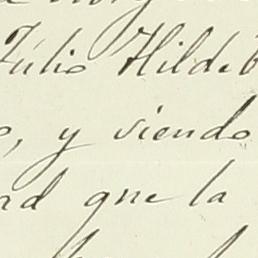 Júlio Hildeb
o, y viendo
ad que la